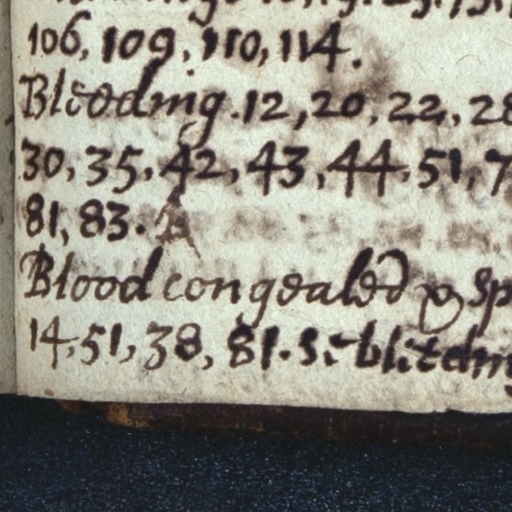 106, 109, 110, 114.
Bleeding. 12, 20, 22, 28
30, 35, 42, 43, 44, 51, 7
81, 83.
Blood congealed & sp
14, 51, 38, 81. si